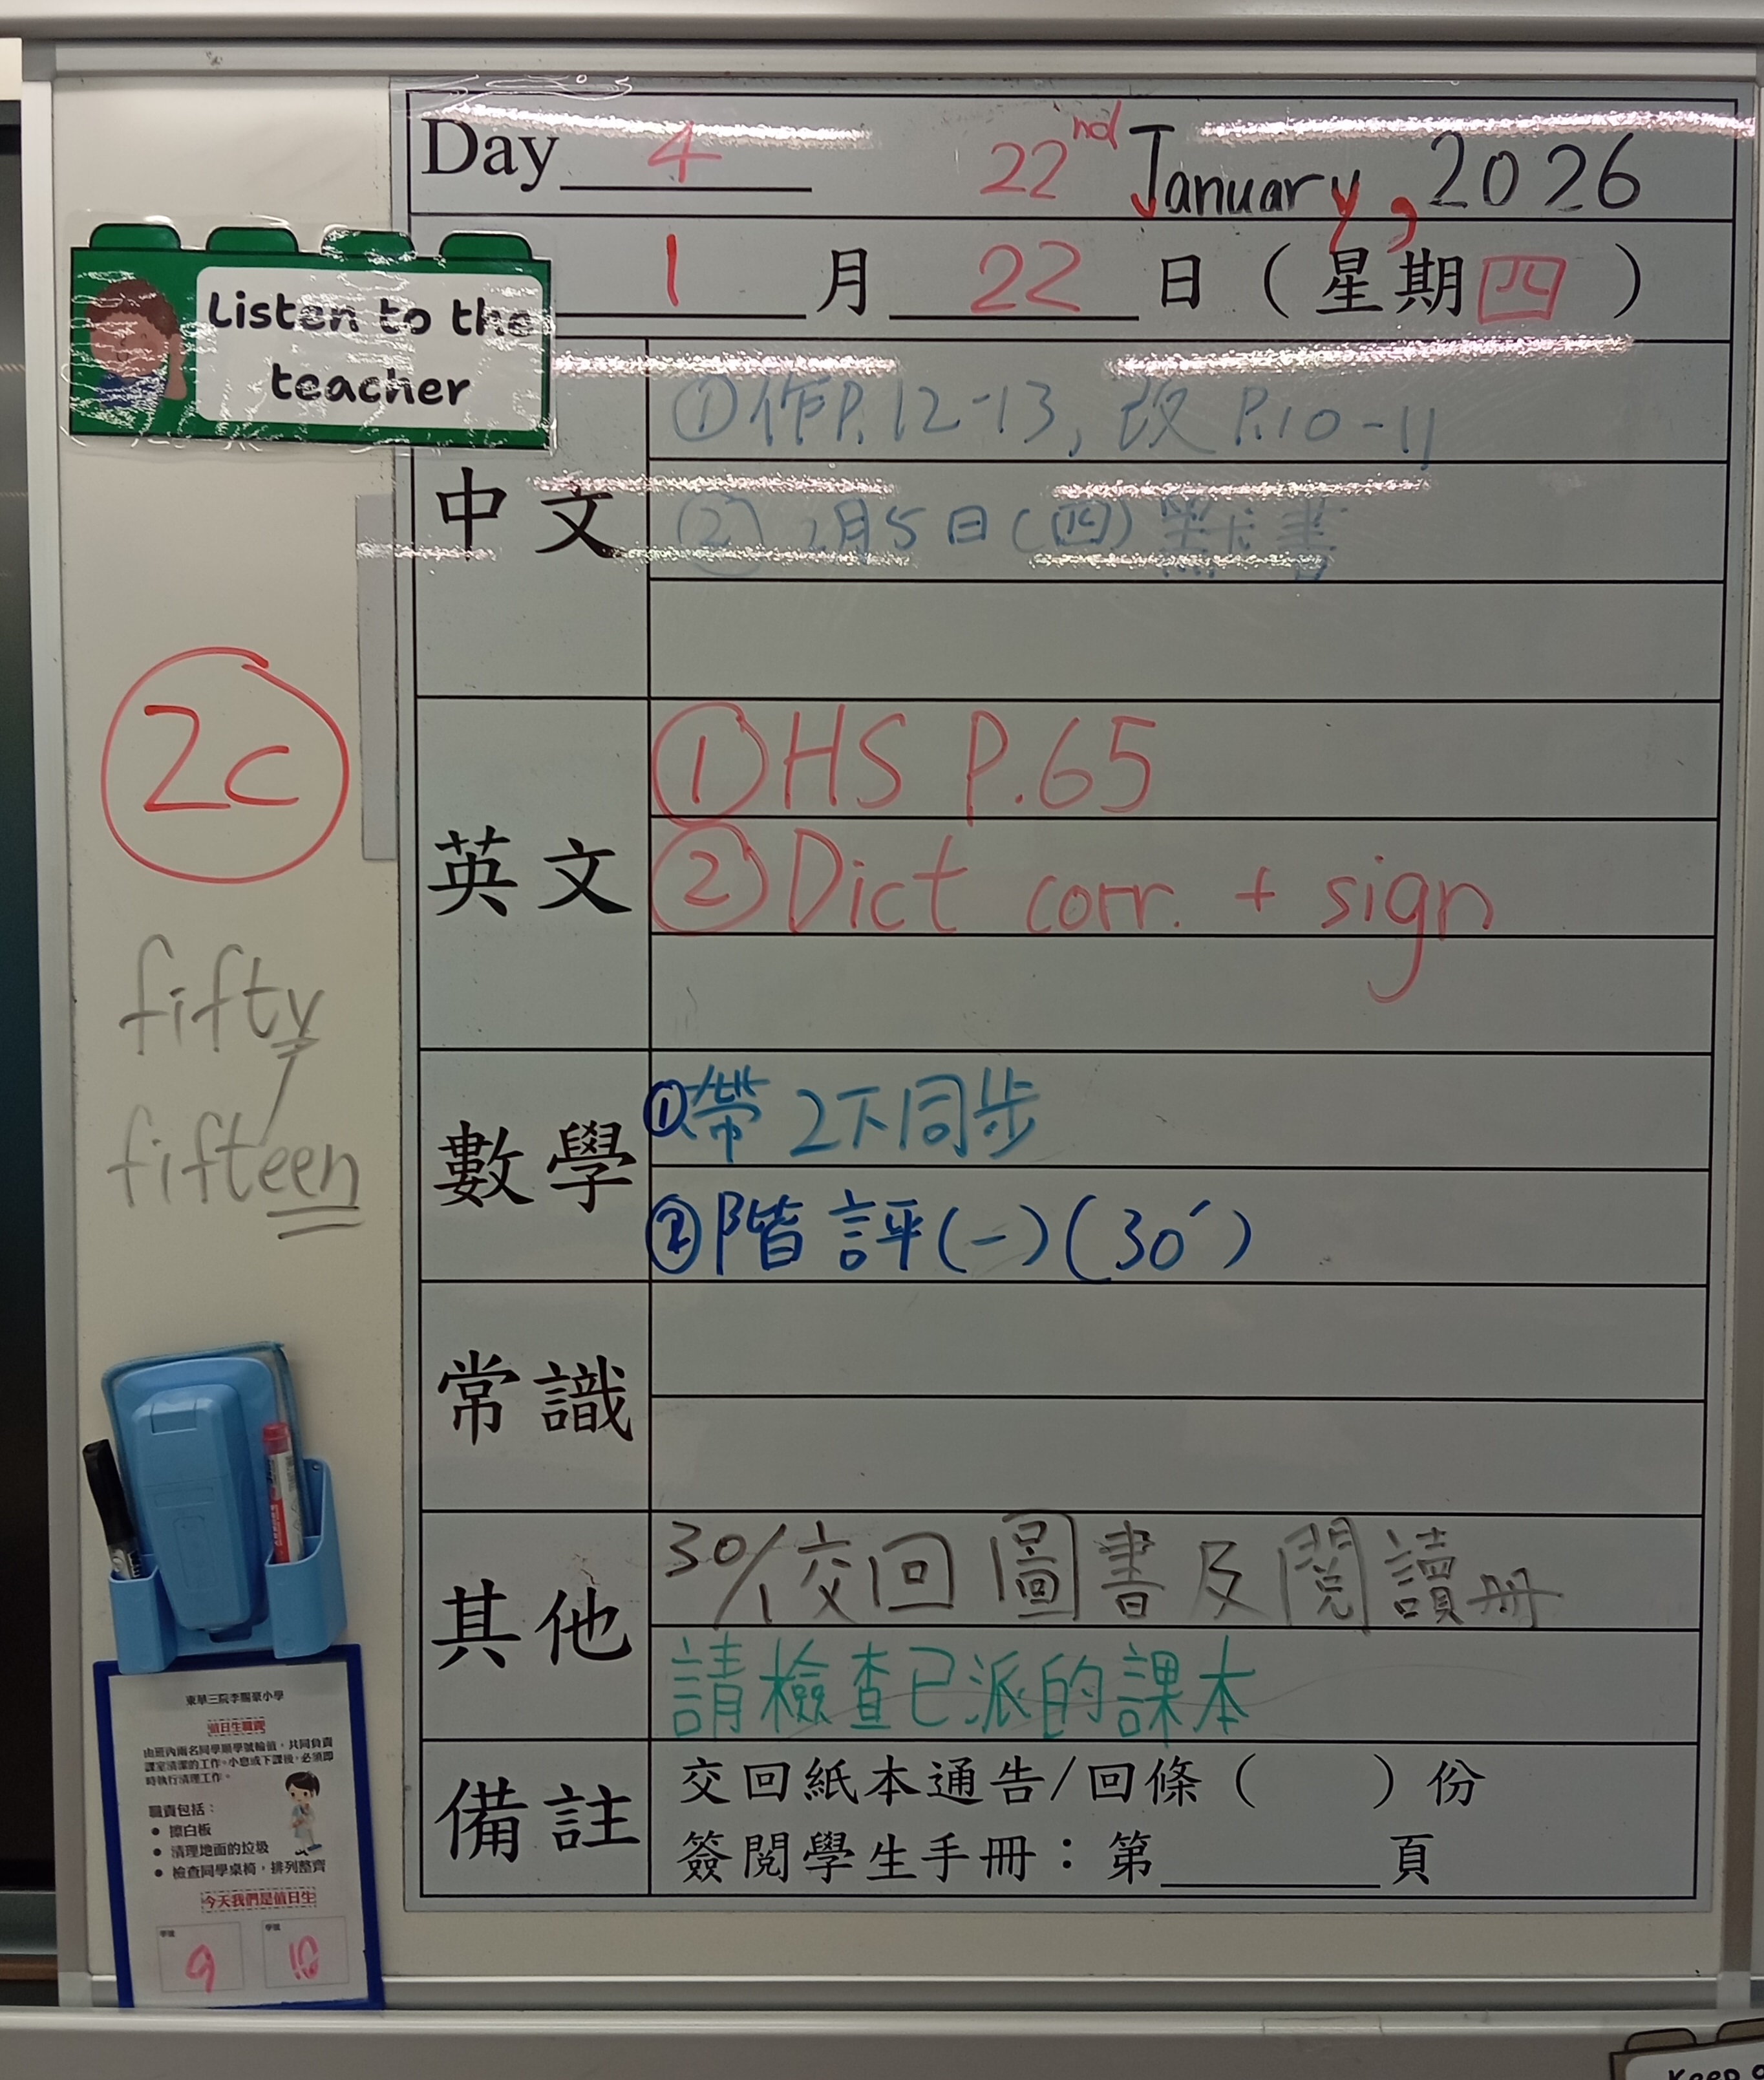 Day 4 22nd January, 2026
1 月 22 日 ( 星期四 )
Listen to the
teacher
中文
① 作P.12-13, 改 P.10-11
② 2月5日(四) 默書
2c
英文
① HS P.65
② Dict corr. + sign
fifty
fifteen
數學
① 帶 2下同步
② 階評(一)(30')
常識
其他
30/1 交回圖書及閱讀冊
請檢查已派的課本
備註
交回紙本通告/回條 ( ) 份
簽閱學生手冊：第______頁
東華三院李賜豪小學
值日生職責
由班內兩名同學順學號輪值，共同負責
課室清潔的工作。小息或下課後，必須即
時執行清理工作。
職責包括：
• 擦白板
• 清理地面的垃圾
• 檢查同學桌椅，排列整齊
今天我們是值日生
學號 學號
9 10
Keep